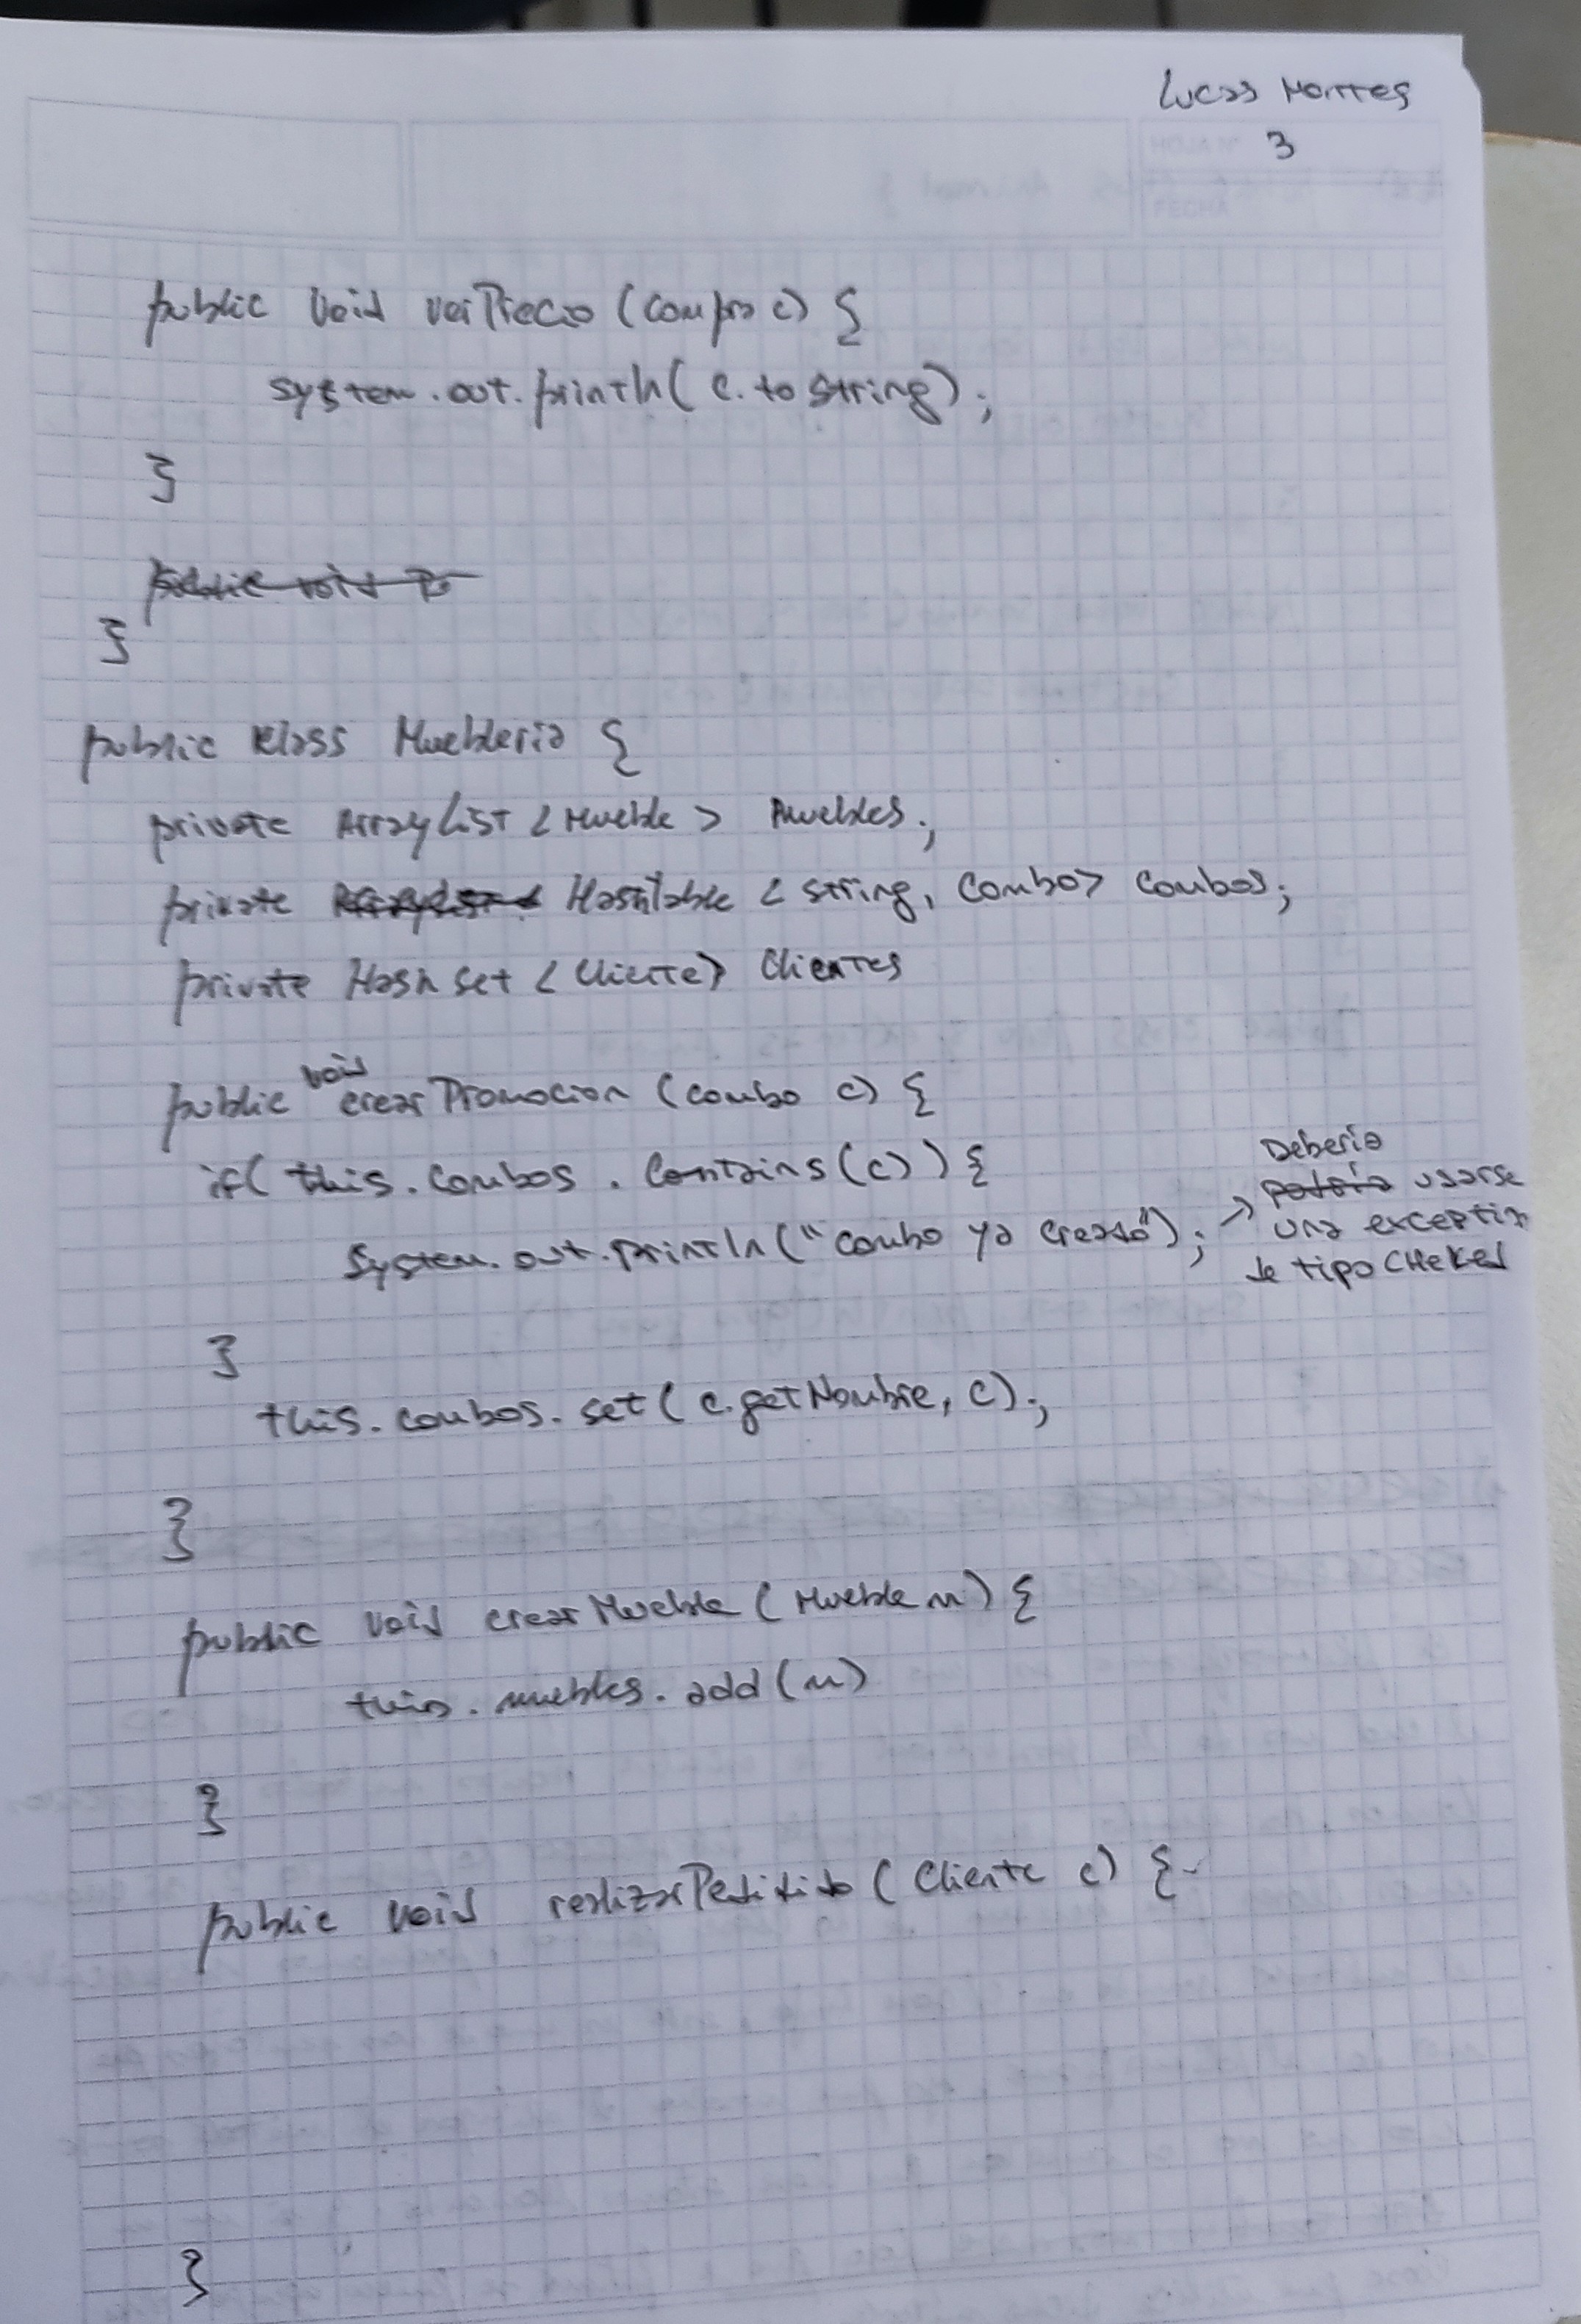 Lucas Montes
HOJA N° 3
FECHA
public void verPrecio (Compra c) {
system.out.println( c.toString);
}
public void
}
public klass Muebleria {
private ArrayList <Mueble> Muebles;
private HashTable <string, Combo> combos;
private HashSet <Cliente> Clientes
public void crearPromocion (combo c) {
if( this.combos.contains(c)) {
System.out.println("combo ya creado"); → Deberia
podria usarse
una exception
de tipo CHeKed
}
this.combos.set( c.getNombre, c);
}
public void crearMueble (Mueble m) {
this.muebles.add(m)
}
public void realizarPedidido (Cliente c) {
}